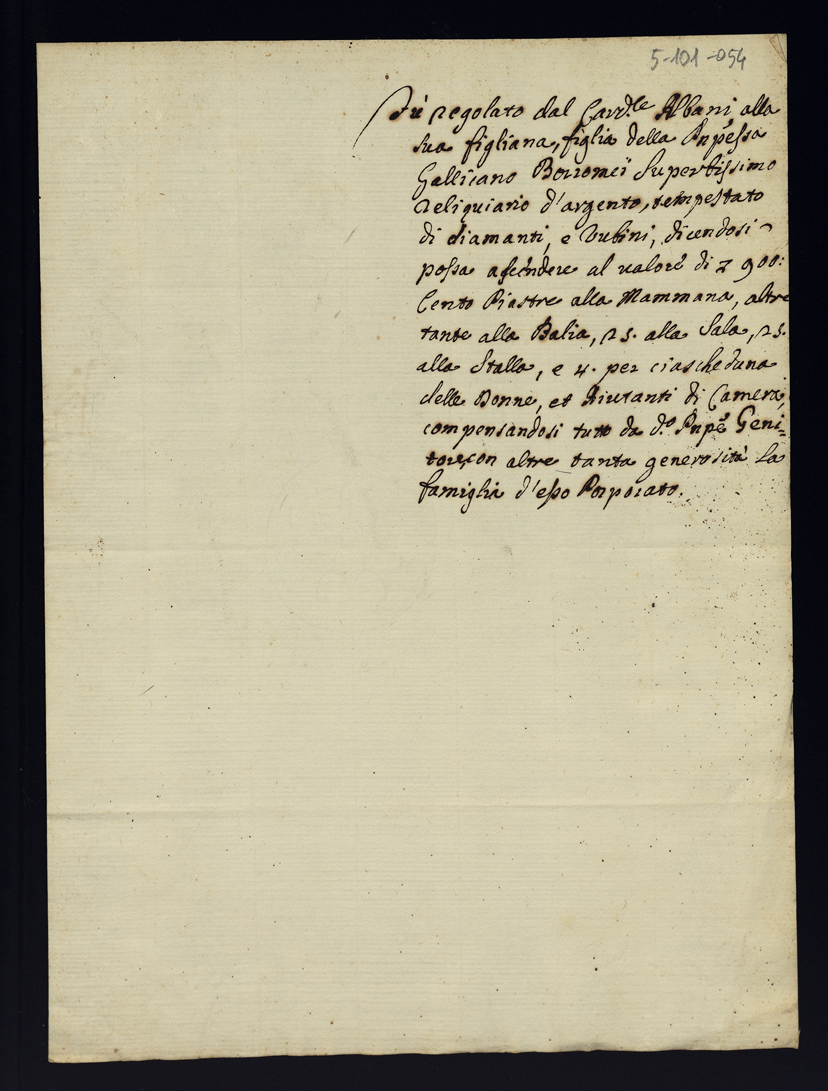 5-101-054
Fù regolato dal Card.le Albani alla
sua figliana, figlia della Pnpessa
Gallicano Borromei Superbissimo
reliquiario d'argento, tempestato
di diamanti, e rubini, dicendosi
possa ascendere al valore di 900:
Cento Piastre alla Mammana, altre
tante alla Balia, 25. alla Sala, 25.
alla Stalla, e 4. per ciascheduna
delle Donne, et Aiutanti di Camera,
compensandosi tutto da d.o Pnpe Geni=
tore, con altre tanta generosità la
famiglia d'esso Porporato.